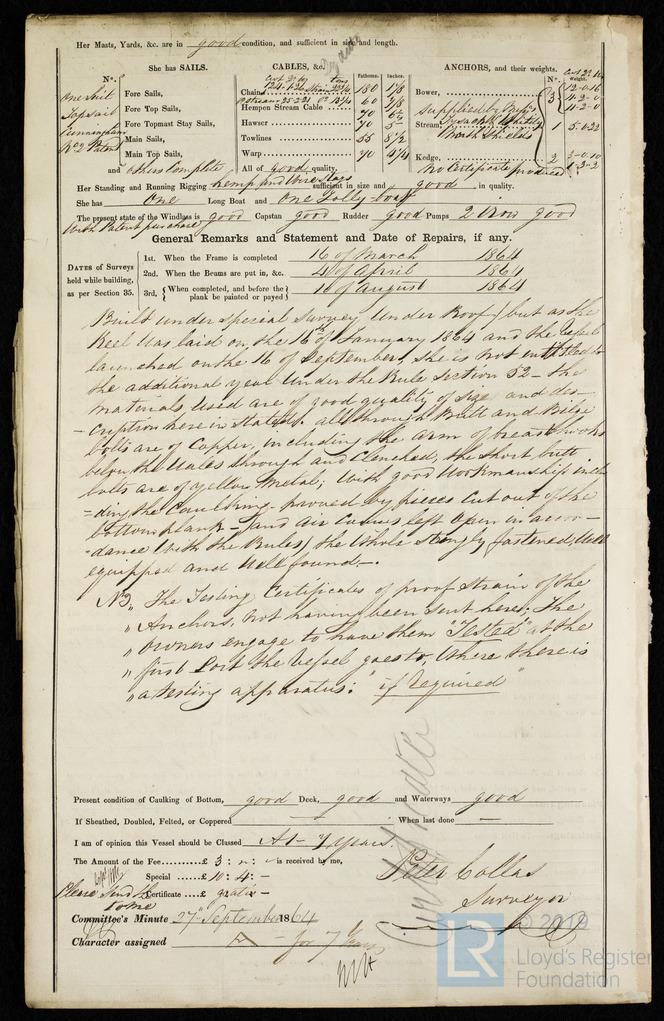 Her Masts, Yards, &c. are in good condition, and sufficient in size and length.
She has SAILS.
CABLES, &c.
Fathoms.
Inches.
ANCHORS, and their weights.
No.
No.
Weight.
One Suit
Topsail
Cunningham
Patent
Fore Sails,
Fore Top Sails,
Fore Topmast Stay Sails,
Main Sails,
Main Top Sails,
and others complete
Chain 180 1 1/8
60 7/8
Hempen Stream Cable 70 6 1/2
Hawser 70 5
Towlines 55 8 1/2
Warp 70 4 1/4
All of good quality.
Bower, 3 12-0-16
11-2-0
11-2-0
supplied by
Stream, 1 5-0-22
North Shields
Kedge, 2
No Certificate produced
Her Standing and Running Rigging hemp and Wire Stays sufficient in size and good in quality.
She has One Long Boat and One Jolly-boat
The present state of the Windlass is good Capstan good Rudder good Pumps 2 Iron good
With Patent purchase
General Remarks and Statement and Date of Repairs, if any.
DATES of Surveys
held while building,
as per Section 35.
1st. When the Frame is completed 16 of March 1864
2nd. When the Beams are put in, &c. 4 of April 1864
3rd, { When completed, and before the plank be painted or payed } 10 of August 1864
Built under special Survey under Roof, but as the
Keel was laid on the 16th of January 1864 and the Vessel
launched on the 16 of September, She is not entitled to
the additional year under the Rule Section 52 - the
materials used are of good quality of Size and des-
-cription herein stated. all through Butt and Bilge
bolts are of Copper, including the arm of breasthooks
below the Wales through and Clenched, the short butt
bolts are of yellow Metal; with good Workmanship inclu
-ding the Caulking - proved by pieces cut out of the
bottom plank - and air courses left open in accor-
dance with the Rules, the Whole strongly fastened, Well
equipped and Well found -.
NB, The Testing Certificates of proof Strain of the
" Anchors, not having been Sent here; The
" Owners engage to have them "Tested" at the
" first Port the Vessel goes to, Where there is
" a testing apparatus: "if required"
Present condition of Caulking of Bottom, good Deck, good and Waterways good
If Sheathed, Doubled, Felted, or Coppered — When last done —
I am of opinion this Vessel should be Classed A1 - 7 years.
The Amount of the Fee..........£ 3 : " : " is received by me,
Special .....£ 10 : 4 : -
Certificate ....£ gratis -
Please send the
to me
Peter Collas
Surveyor
Committee's Minute 27th September 1864
Character assigned A for 7 Years
© 2019
LR
Lloyd's Register
Foundation